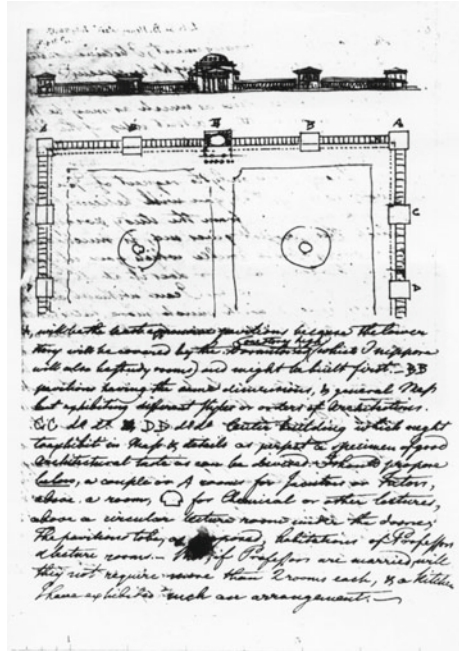 A B B A
C
A
will be the least expensive pavilions because the lower
story will be covered by the Dormitories (one story high) (which I suppose
will also be study rooms) and might be built first. – BB
pavilions having the same dimensions, & general Mass
but exhibiting different styles or orders of Architecture.
CC do do DD do do Center building which ought
to exhibit in Mass & details as perfect a specimen of good
Architectural taste as can be devised. I should propose
below, a couple or 4 rooms for Janitors or Tutors,
above a room for Chemical or other lectures,
above a circular lecture room under the dome;
The pavilions to be, as proposed, habitations of Professors
& lecture rooms. – if Professors are married, will
they not require more than 2 rooms each, & a kitchen
I have exhibited such an arrangement. –